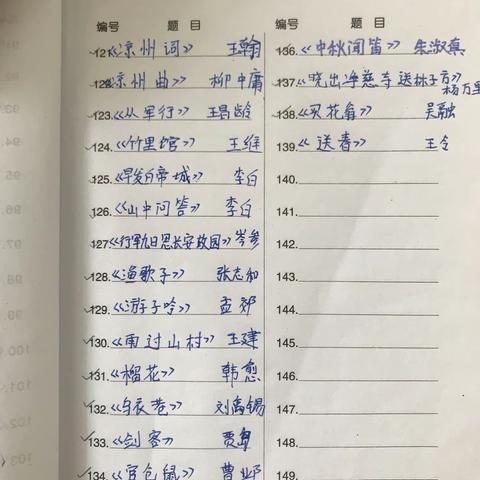 编号 题目
121《凉州词》 王翰
122《凉州曲》 柳中庸
123.《从军行》 王昌龄
124.《竹里馆》 王维
125.《早发白帝城》 李白
126.《山中问答》 李白
127.《行军九日思长安故园》岑参
128.《渔歌子》 张志和
129.《游子吟》 孟郊
130.《雨过山村》王建
131.《榴花》 韩愈
132.《乌衣巷》 刘禹锡
133.《剑客》 贾岛
134.《官仓鼠》 曹邺
编号 题目
136.《中秋闻笛》 朱淑真
137.《晓出净慈寺送林子方》杨万里
138.《买花翁》 吴融
139.《送春》 王令
140.
141.
142.
143.
144.
145.
146.
147.
148.
149.